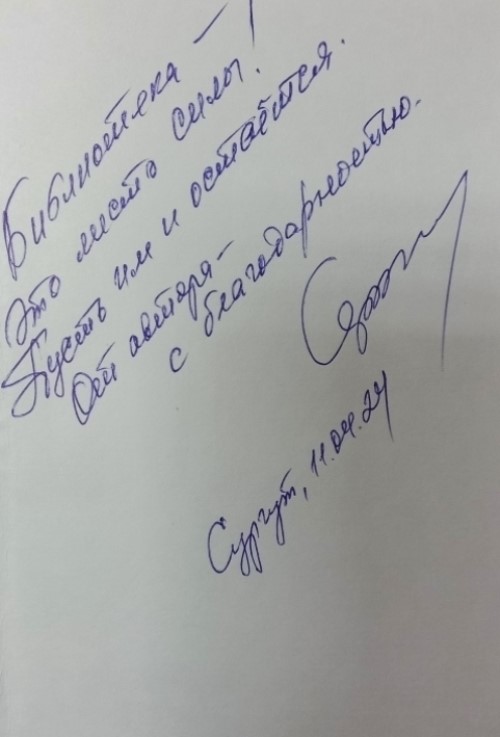 Библиотека -
Это место силы!
Пусть им и остаётся.
От автора -
с благодарностью.
Сургут, 11.04.24